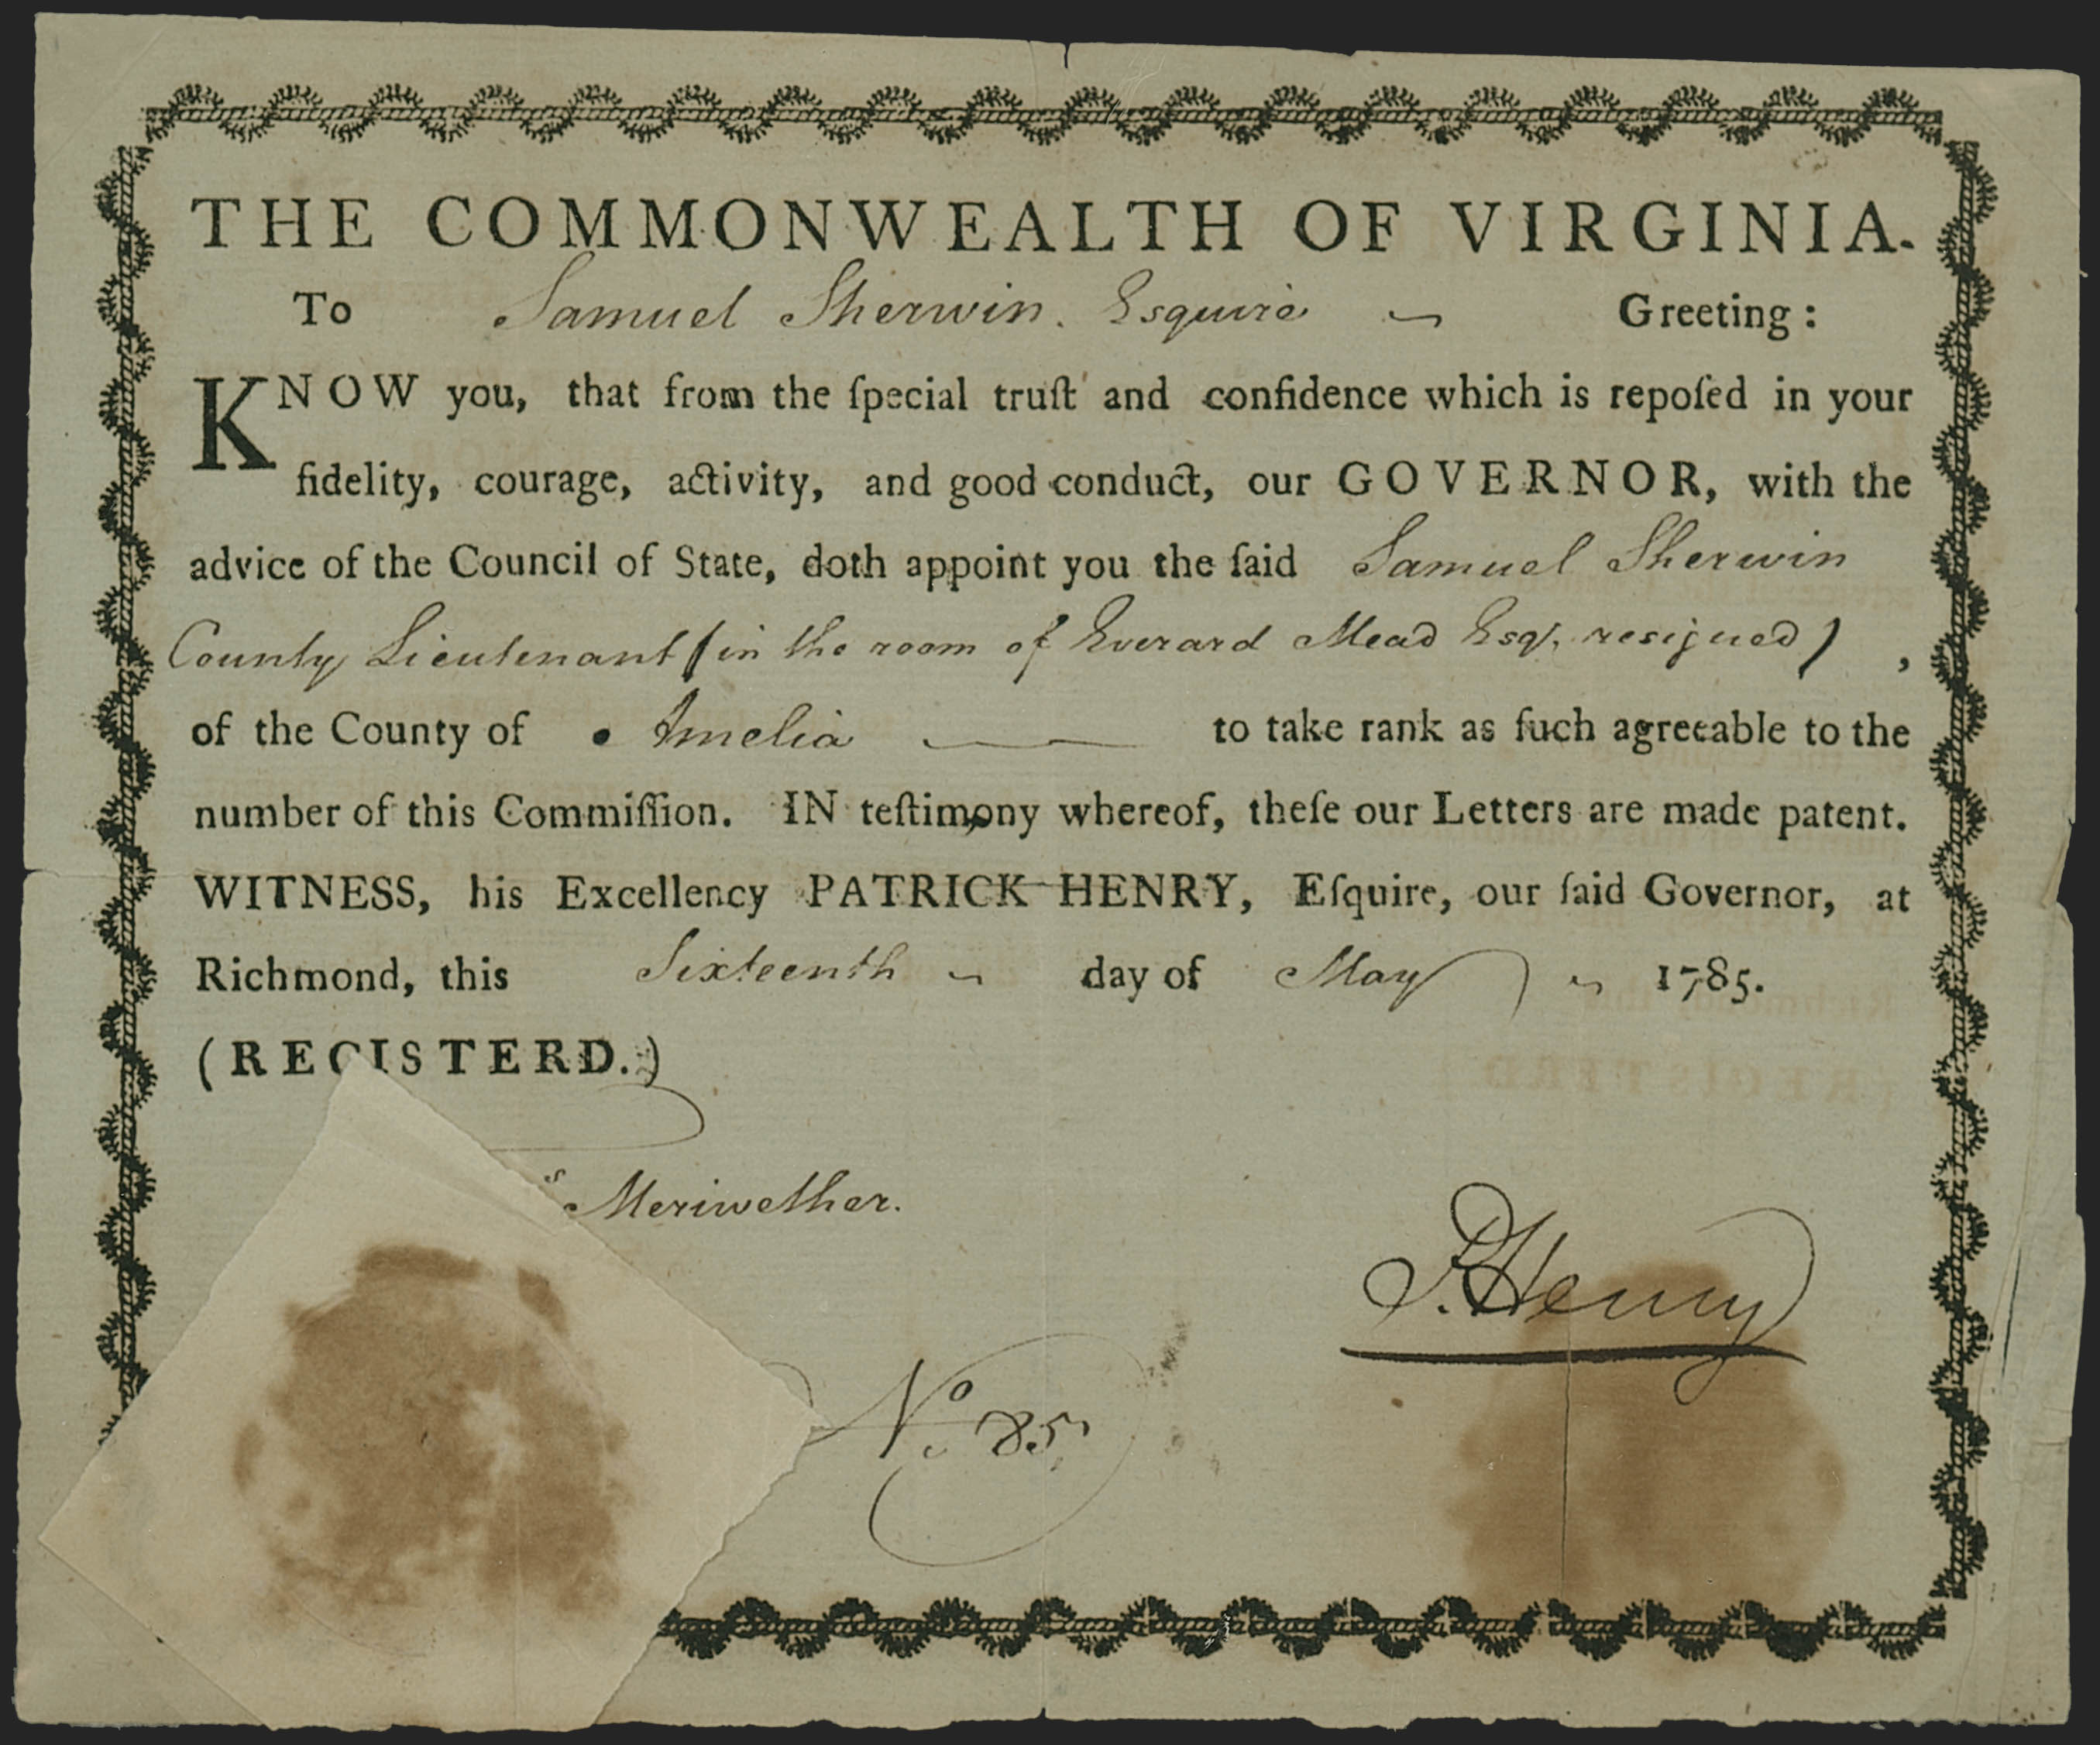 THE COMMONWEALTH OF VIRGINIA.
To Samuel Sherwin. Esquire Greeting:
KNOW you, that from the ſpecial truſt and confidence which is repoſed in your
fidelity, courage, activity, and good conduct, our GOVERNOR, with the
advice of the Council of State, doth appoint you the ſaid Samuel Sherwin
County Lieutenant (in the room of Everard Mead Esqr. resigned) ,
of the County of Amelia to take rank as ſuch agreeable to the
number of this Commiſſion. IN teſtimony whereof, theſe our Letters are made patent.
WITNESS, his Excellency PATRICK HENRY, Eſquire, our ſaid Governor, at
Richmond, this Sixteenth day of May 1785.
(REGISTERD.)
s Meriwether.
P. Henry
No. 85